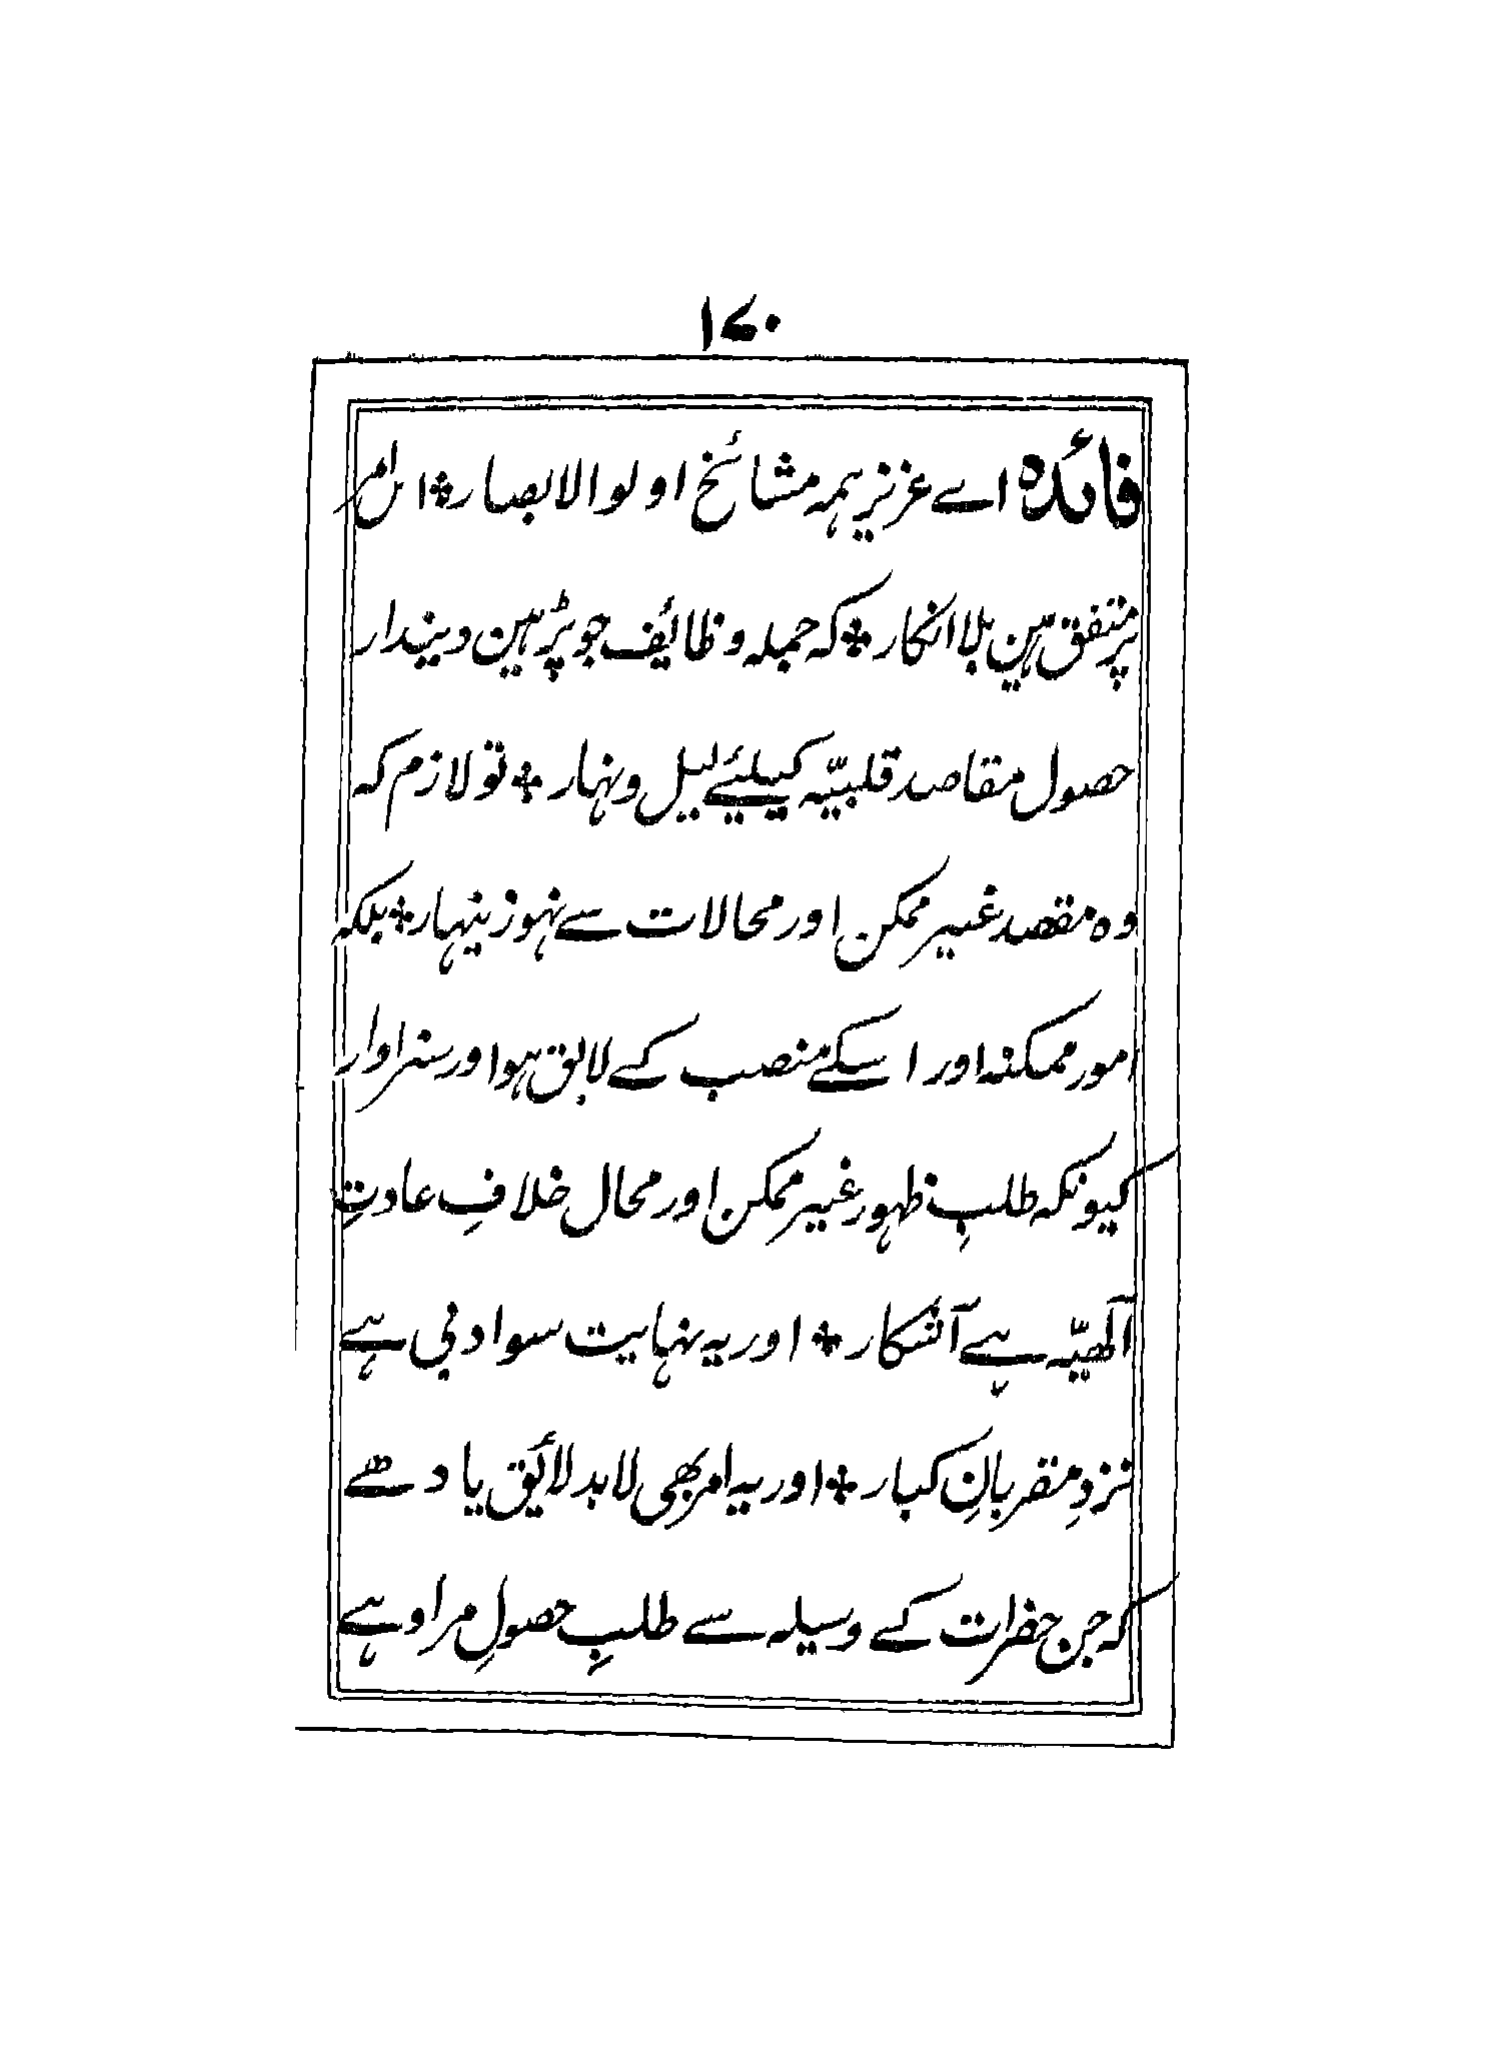 ۱۷۰
فائدہ اے عزیز ہمہ مشائخ اولوالابصار ٭ اس امر
پر متفق ہین بلا انکار ٭ کہ جملہ وظائیف جو پڑہین دیندار
حصول مقاصد قلبیّہ کیلیئے لیل و نہار ٭ تو لازم کہ
وہ مقصد غیر ممکن اور محالات سے نہو زینہار ٭ بلکہ
امور ممکنہ اور اسکے منصب کے لایق ہو اور سزاوار
کیونکہ طلبِ ظہور غیر ممکن اور محال خلافِ عادتِ
آلھیّہ ہے آشکار ٭ اور یہ نہایت سوادبی ہے
نزدِ مقربانِ کبار ٭ اور یہ امر بھی لابد لائیق یاد ھے
کہ جن حضرات کے وسیلہ سے طلبِ حصولِ مراد ہے